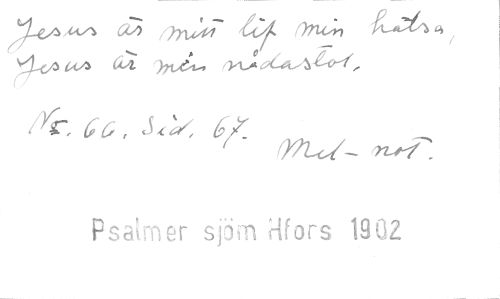 Jesus är mitt lif min hälsa,
Jesus är min nådastol.
Nr. 66. Sid. 67.
Mel-not.
Psalmer sjöm Hfors 1902